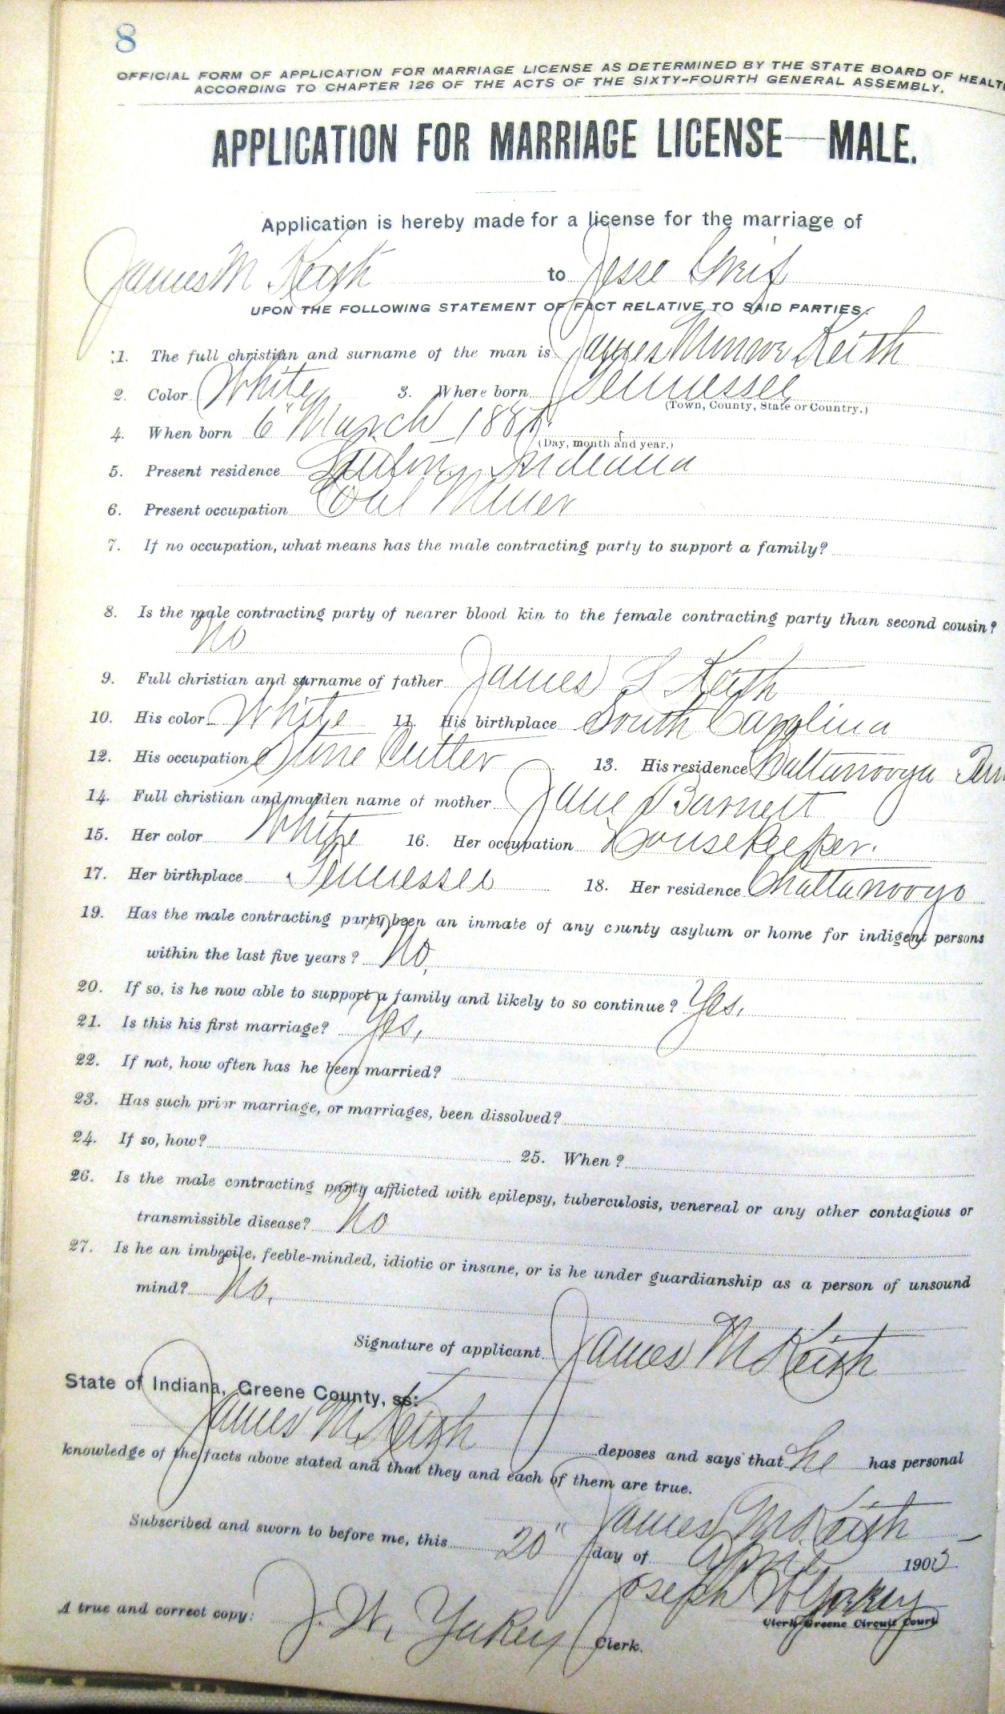 8
OFFICIAL FORM OF APPLICATION FOR MARRIAGE LICENSE AS DETERMINED BY THE STATE BOARD OF HEALT
ACCORDING TO CHAPTER 126 OF THE ACTS OF THE SIXTY-FOURTH GENERAL ASSEMBLY.
APPLICATION FOR MARRIAGE LICENSE—MALE.
Application is hereby made for a license for the marriage of
James M Keith to Jesse Greif
UPON THE FOLLOWING STATEMENT OF FACT RELATIVE TO SAID PARTIES:
1. The full christian and surname of the man is James Munroe Keith
2. Color White 3. Where born Tennessee
(Town, County, State or Country.)
4. When born 6" March 188
(Day, month and year.)
5. Present residence Indiana
6. Present occupation Coal Miner
7. If no occupation, what means has the male contracting party to support a family?
8. Is the male contracting party of nearer blood kin to the female contracting party than second cousin?
No
9. Full christian and surname of father James S Keith
10. His color White 11. His birthplace South Carolina
12. His occupation Stone Cutter 13. His residence Chattanooga Tenn
14. Full christian and maiden name of mother Jane Burnett
15. Her color White 16. Her occupation Housekeeper.
17. Her birthplace Tennessee 18. Her residence Chattanooga
19. Has the male contracting party been an inmate of any county asylum or home for indigent persons
within the last five years? No.
20. If so, is he now able to support a family and likely to so continue? Yes.
21. Is this his first marriage? Yes.
22. If not, how often has he been married?
23. Has such prior marriage, or marriages, been dissolved?
24. If so, how? 25. When?
26. Is the male contracting party afflicted with epilepsy, tuberculosis, venereal or any other contagious or
transmissible disease? No
27. Is he an imbecile, feeble-minded, idiotic or insane, or is he under guardianship as a person of unsound
mind? No.
Signature of applicant James M Keith
State of Indiana, Greene County, ss:
James M Keith deposes and says that he has personal
knowledge of the facts above stated and that they and each of them are true.
James M Keith
Subscribed and sworn to before me, this 20" day of April 1905
Joseph W Yakey
Clerk Greene Circuit Court
A true and correct copy: J. W. Yakey Clerk.